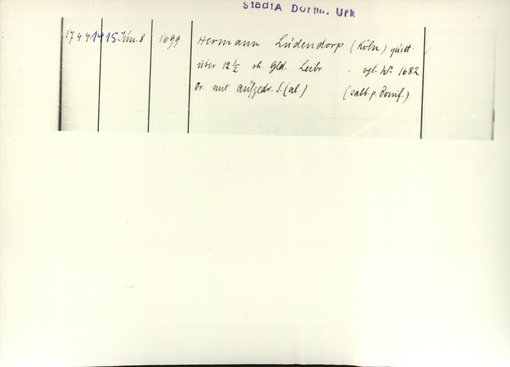 StadtA Dortm. Urk
1744 1415 Jun. 8 1699 Hermann Lüdendorp (Köln) quitt
über 12 1/2 rh. Gld. Leibr. vgl. Nr. 1682
Or. mit aufgedr. S. (al.)